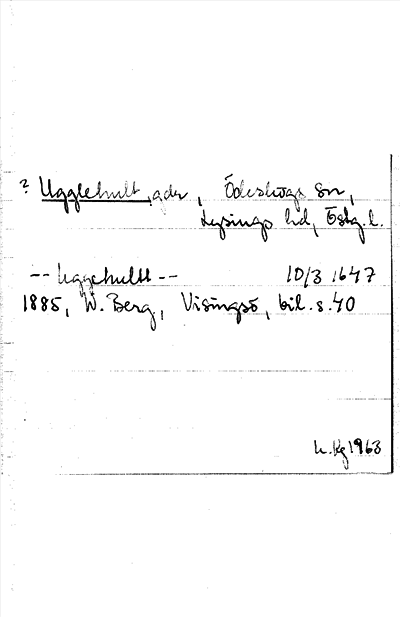 ? Ugglehult, gdn, Ödeshögs sn,
Lysings hd, Östg. l.
-- Uggehultt -- 10/3 1647
1885, W. Berg, Visingsö, bil. s. 40
1963